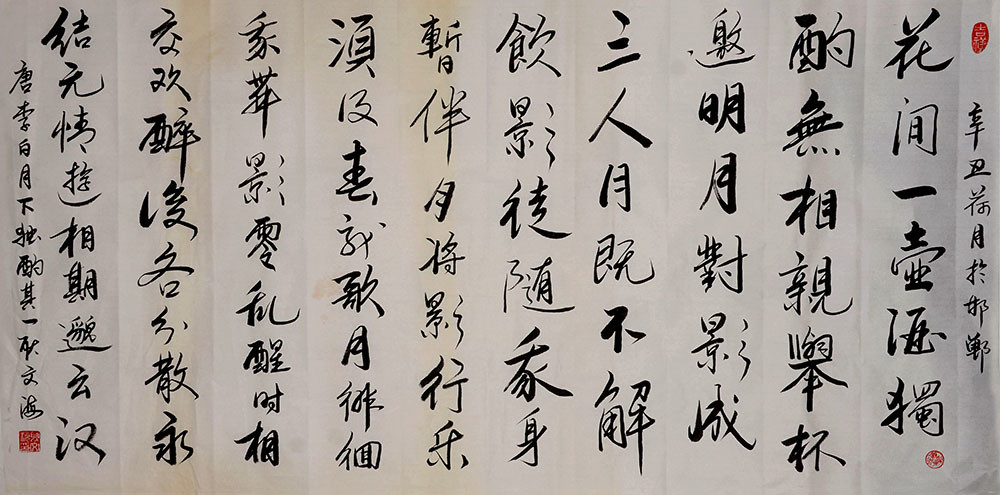 吉祥
辛丑荷月於邯鄲
花间一壺酒獨
酌無相親舉杯
邀明月對影成
三人月既不解
飲影徒随我身
暫伴月将影行乐
須及春我歌月徘徊
我舞影零乱醒时相
交欢醉後各分散永
结无情遊相期邈云汉
唐李白月下独酌其一耿文海